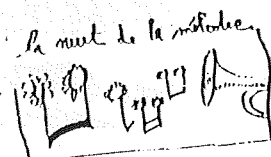 la nuit de la mélodie